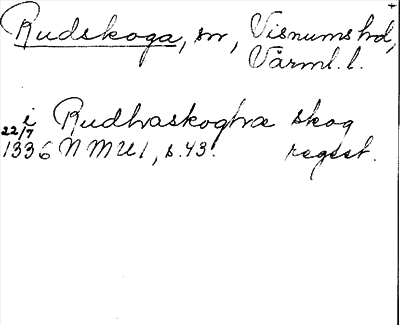 Rudskoga, sn, Visnums hd,
Värml. l.
i Rudhvaskoghæ skog
22/7
1336 N M U 1, s. 43. regest.